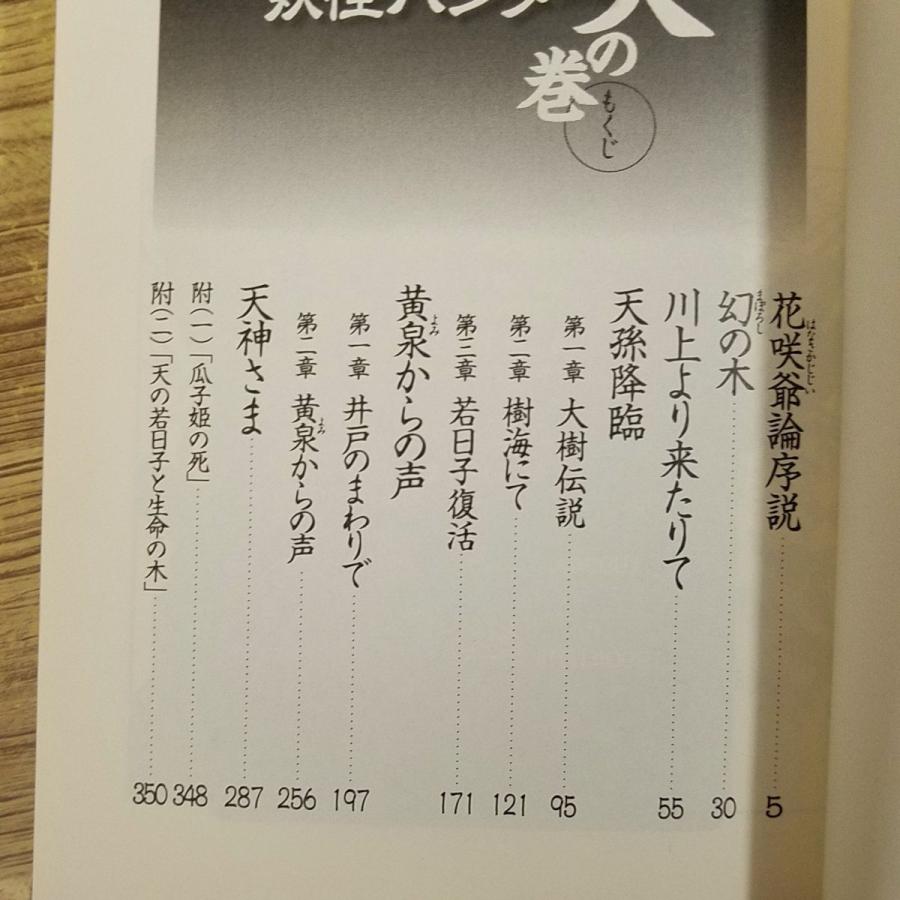 妖怪ハンター
天の巻
もくじ
花咲爺論序説 5
はなさかじじい
幻の木 30
まぼろし
川上より来たりて 55
天孫降臨
第一章 大樹伝説 95
第二章 樹海にて 121
第三章 若日子復活 171
黄泉からの声
よみ
第一章 井戸のまわりで 197
第二章 黄泉からの声 256
よみ
天神さま 287
附(一)「瓜子姫の死」 348
附(二)「天の若日子と生命の木」 350